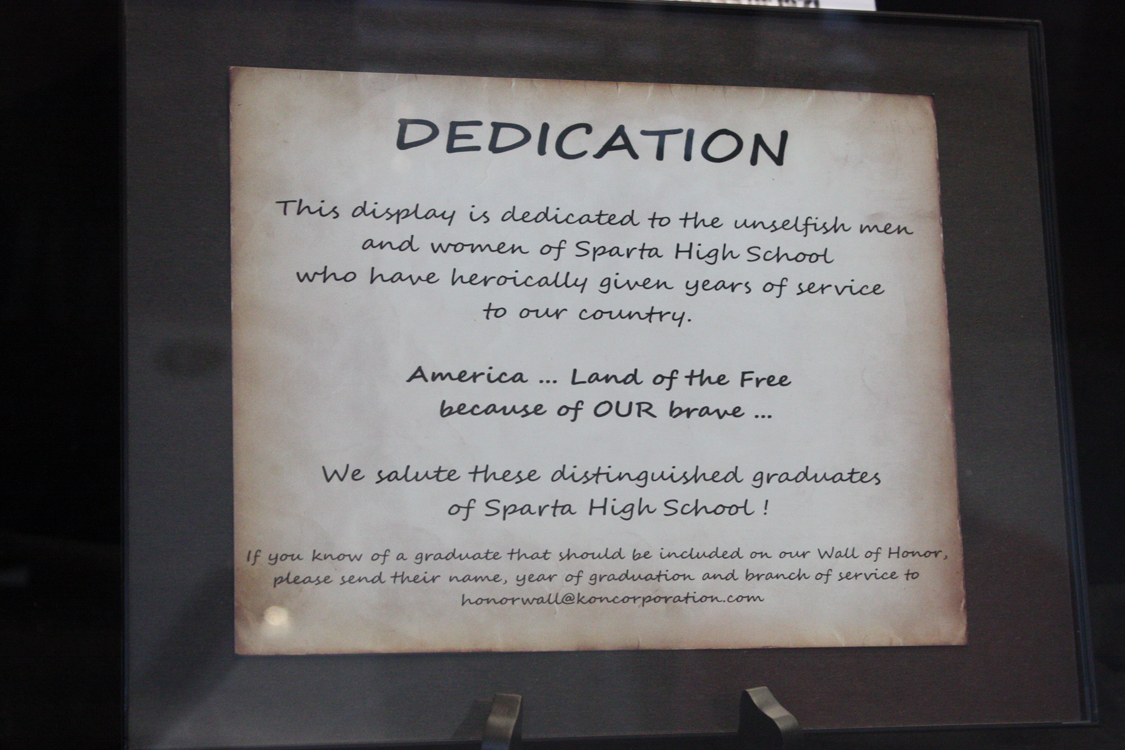 DEDICATION
This display is dedicated to the unselfish men
and women of Sparta High School
who have heroically given years of service
to our country.
America ... Land of the Free
because of OUR brave ...
We salute these distinguished graduates
of Sparta High School !
If you know of a graduate that should be included on our Wall of Honor,
please send their name, year of graduation and branch of service to
honorwall@koncorporation.com